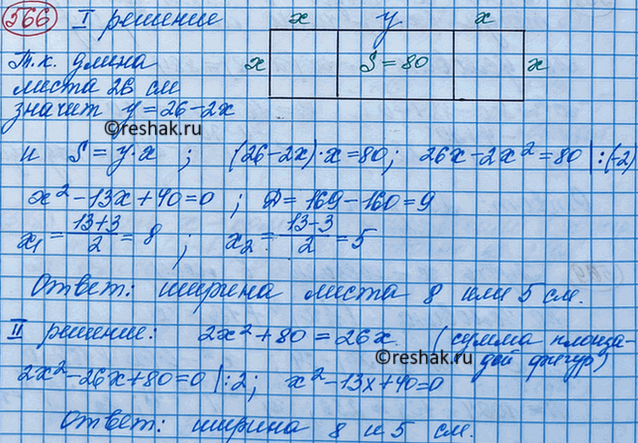 566 I решение
x y x
Т.к. длина
x S = 80 x
листа 26 см
значит y = 26 - 2x
©reshak.ru
и S = y·x ; (26 - 2x)·x = 80 ; 26x - 2x² = 80 |:(-2)
x² - 13x + 40 = 0 ; D = 169 - 160 = 9
x₁ = (13+3)/2 = 8 ; x₂ = (13-3)/2 = 5
Ответ: ширина листа 8 или 5 см.
II решение: 2x² + 80 = 26x. (сумма площа-
©reshak.ru
дей фигур)
2x² - 26x + 80 = 0 |:2 ; x² - 13x + 40 = 0
Ответ: ширина 8 и 5 см.